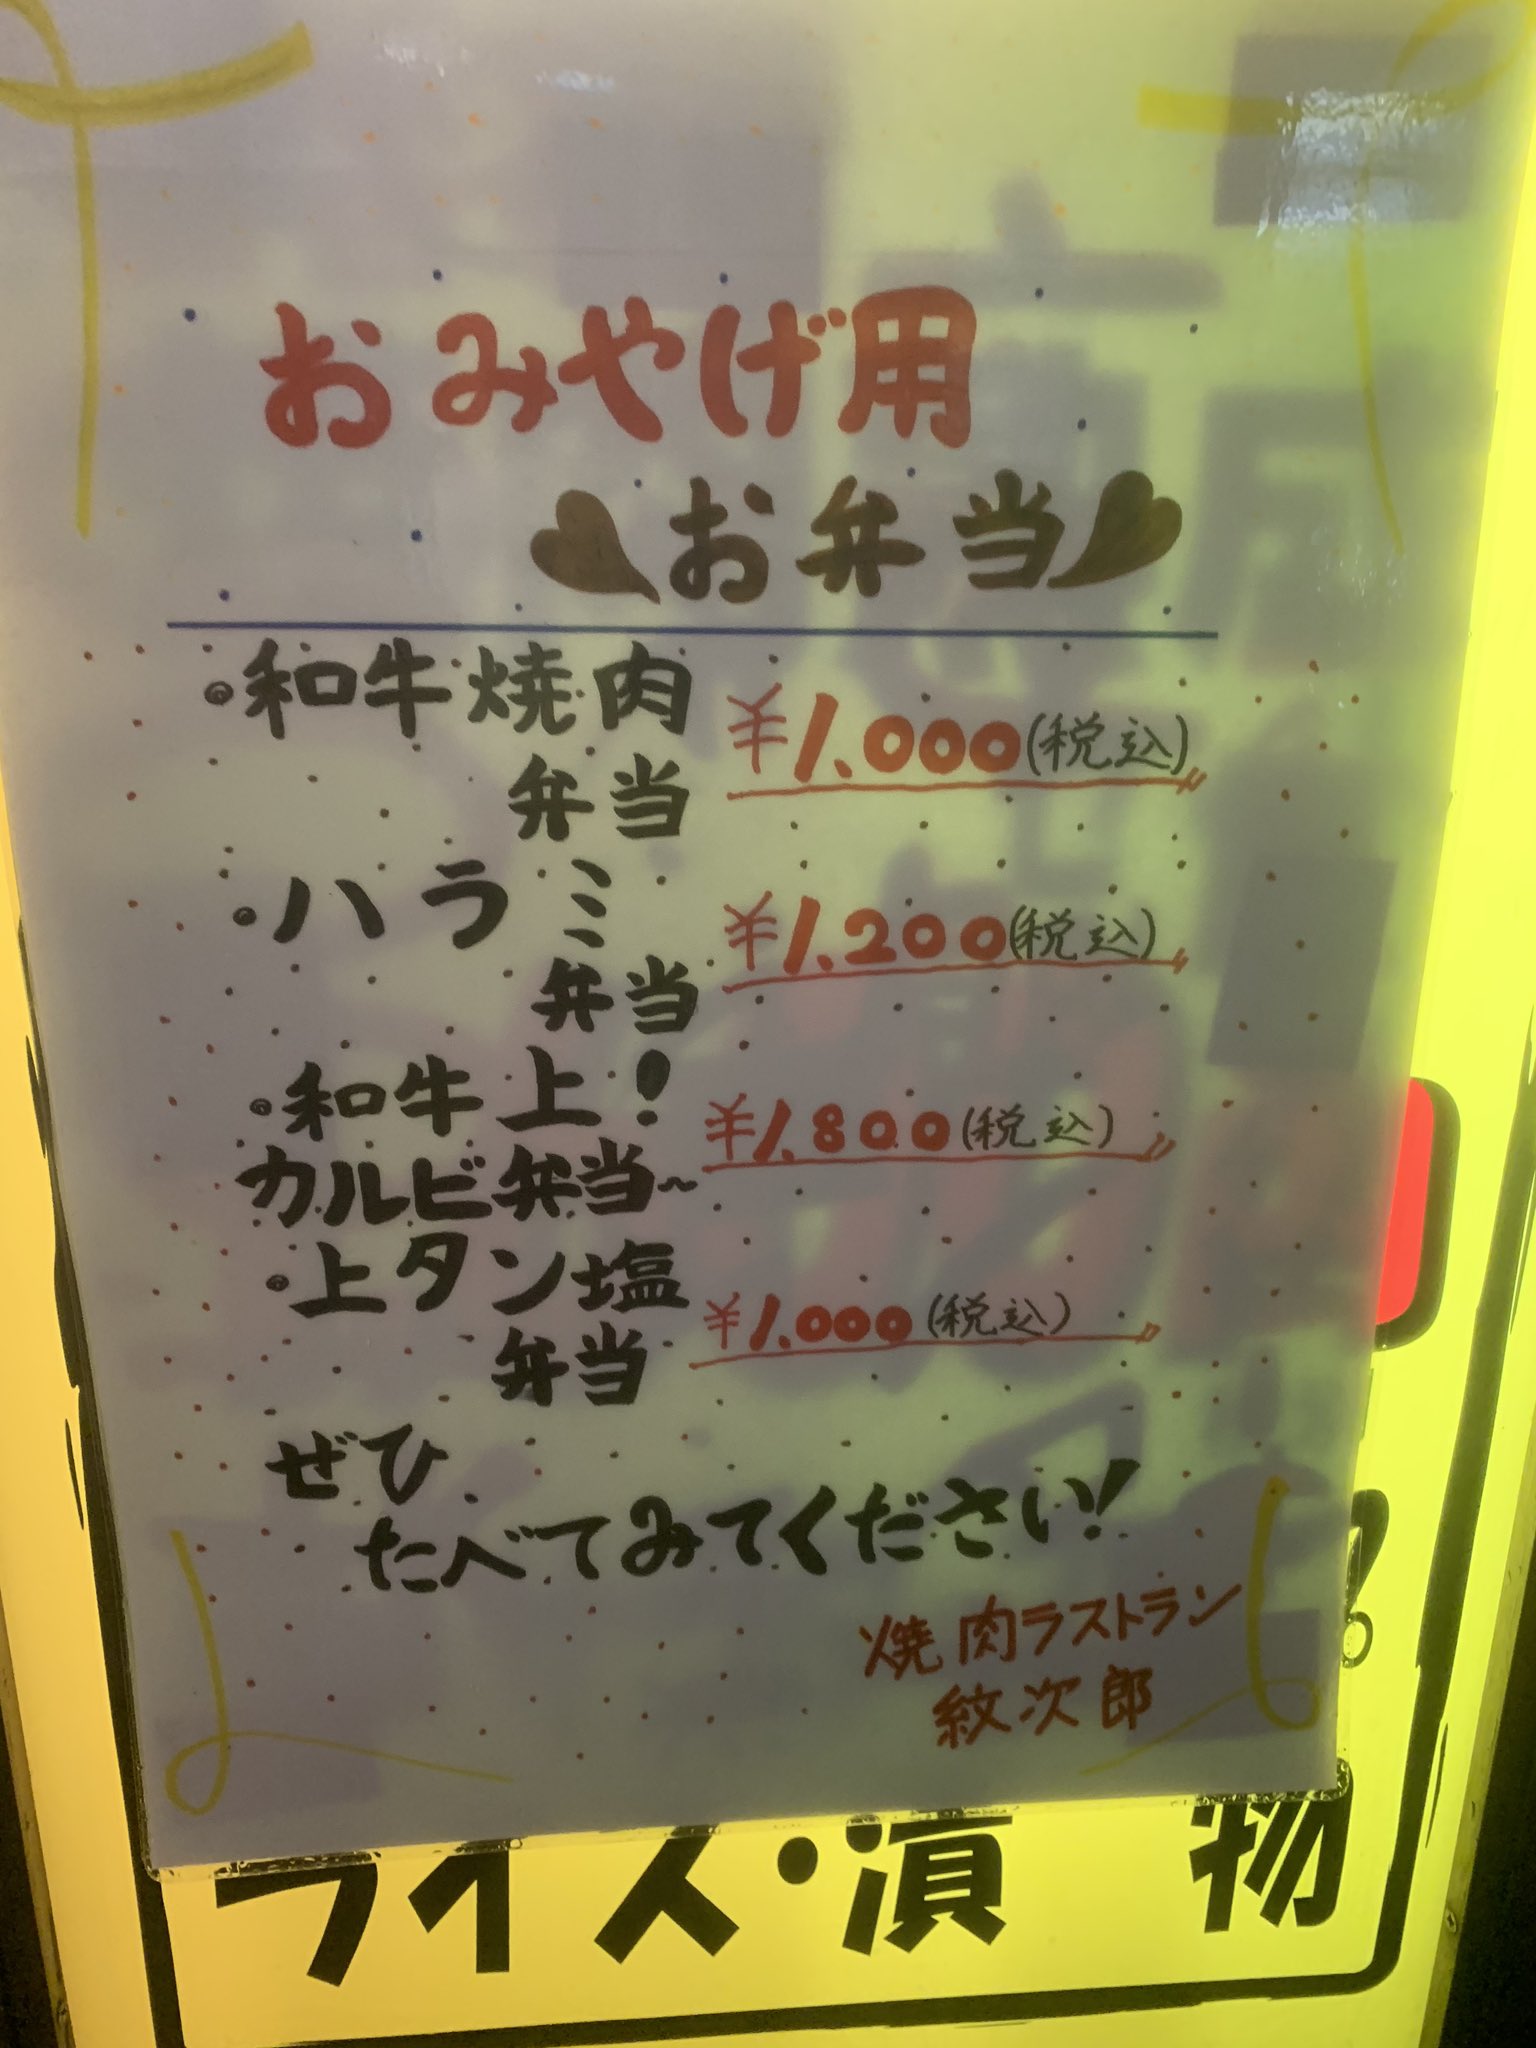 おみやげ用
お弁当
・和牛焼肉
弁当 ¥1.000(税込)
・ハラミ
弁当 ¥1.200(税込)
・和牛上!
カルビ弁当~ ¥1.800(税込)
・上タン塩
弁当 ¥1.000(税込)
ぜひ
たべてみてください!
焼肉ラストラン
紋次郎
ライス・漬物